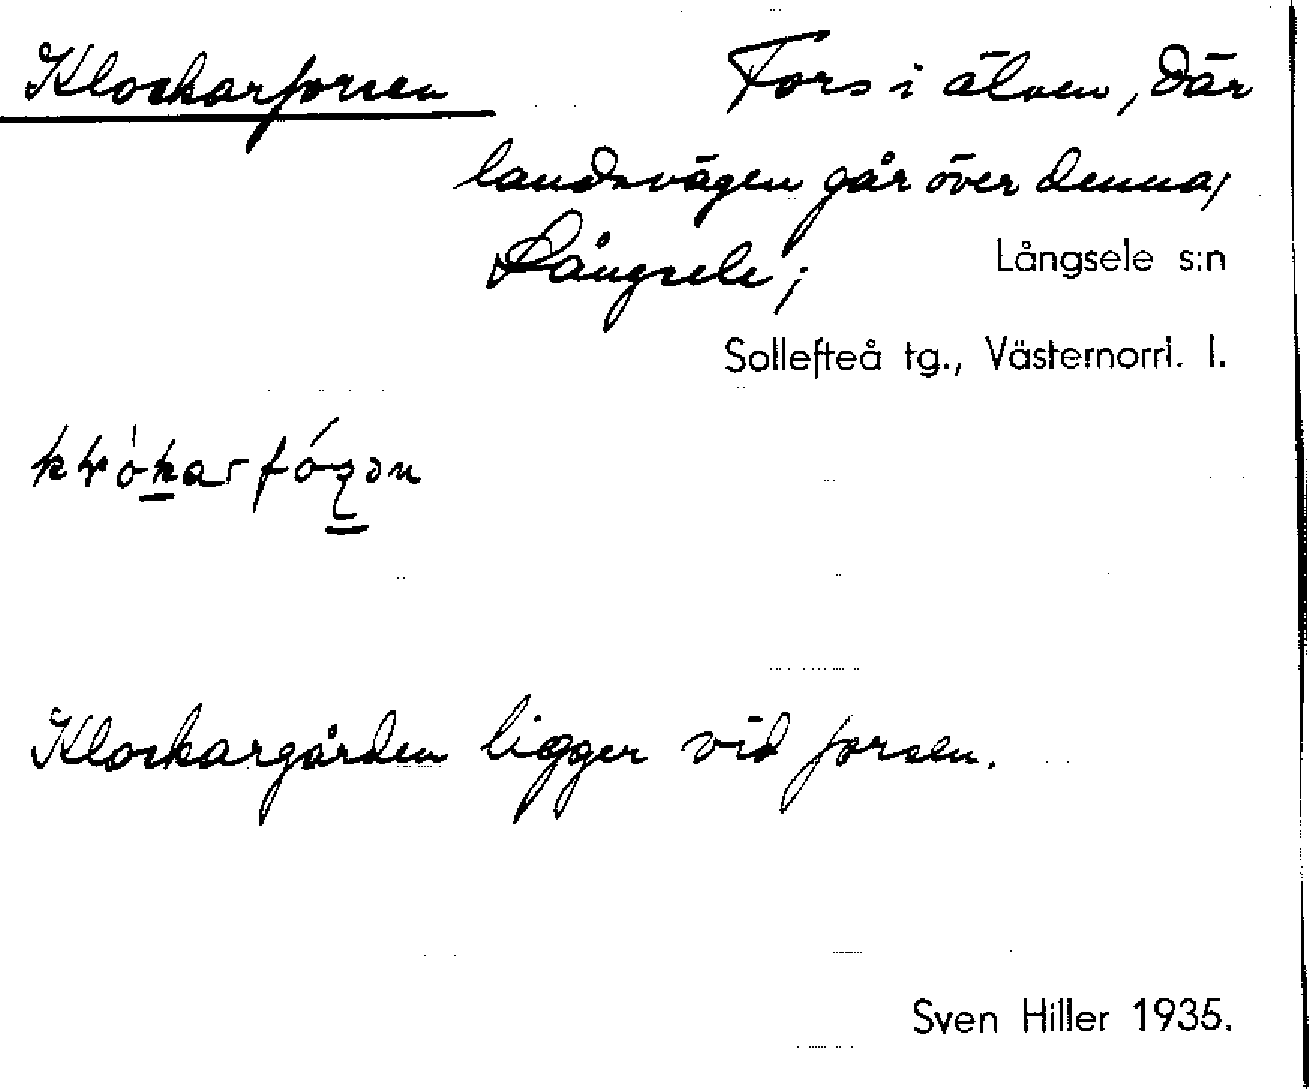 Klockarforsen Fors i älven, där
landsvägen går över denna,
Långsele; Långsele s:n
Sollefteå tg., Västernorrl. l.
Klockargården ligger vid forsen.
Sven Hiller 1935.